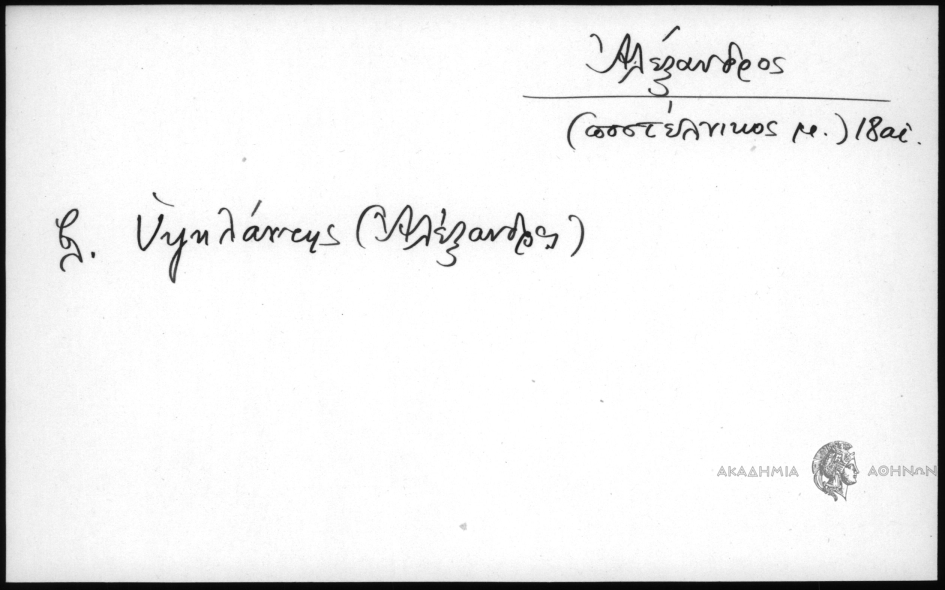 Ἀλέξανδρος
(ποστέλνικος μ.) 18 αἰ.
βλ. Ὑψηλάντης (Ἀλέξανδρος)
ΑΚΑΔΗΜΙΑ ΑΘΗΝΩΝ